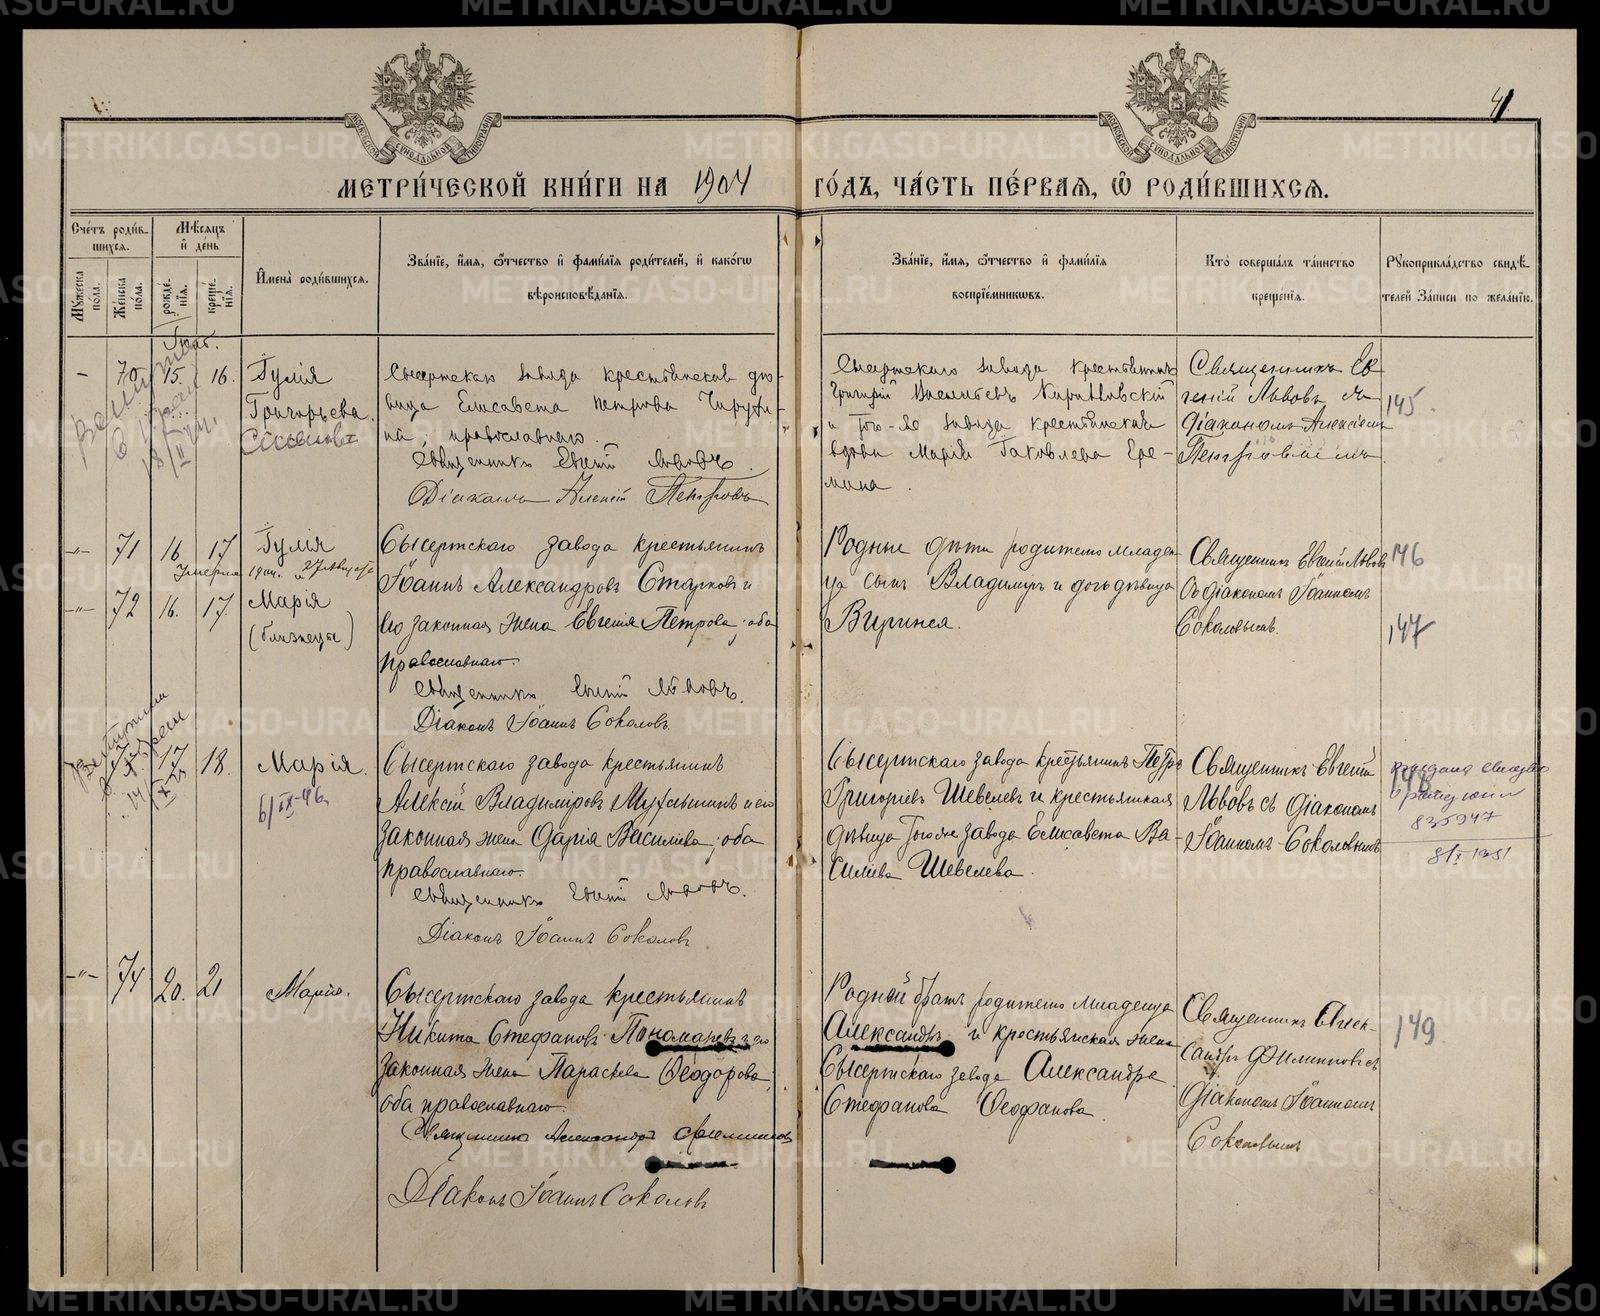 METRIKI.GASO-URAL.RU
41
МЕТРИ́ЧЕСКОЙ КНИ́ГИ НА 1904 ГО́ДЪ, ЧА́СТЬ ПЕ́РВАѦ, Ѡ҆ РОДИ́ВШИХСѦ.
Сче́тъ роди́в-
шихсѧ.
Мѣ́сѧцъ
и҆ де́нь
Мꙋ́жеска
пола.
Же́нска
пола.
рожде́-
нїѧ.
креще́-
нїѧ.
И҆мена̀ роди́вшихсѧ.
Зва́нїе, и҆́мѧ, ѻ҆́тчество и҆ фами́лїѧ роди́телей, и҆ како́гѡ
вѣроисповѣ́данїѧ.
Зва́нїе, и҆́мѧ, ѻ҆́тчество и҆ фами́лїѧ
воспрїе́мникѡвъ.
Кто̀ соверша́лъ та́инство
креще́нїѧ.
Рꙋкоприкла́дство свидѣ́-
телей за́писи по жела́нїю.
- 70 15. 16. Iулія
Григорьева.
Сысертскаго завода крестьянская дѣ-
вица Елисавета Петрова
православнаго.
Священникъ Евгеній Львовъ.
Діаконъ Алексій Петровъ
Сысертскаго завода крестьянинъ
Григорій Васильевъ
и того-же завода крестьянская
вдова Марія Іаковлева Ере-
мина.
Священникъ Ев-
геній Львовъ съ
діакономъ Алексіемъ
145.
-"- 71 16. 17 Iулія
Умерла 1904. 27 Августа
-"- 72 16. 17. Марія
(близнецы)
Сысертскаго завода крестьянинъ
Іоаннъ Александровъ Старковъ и
его законная жена Евгенія Петрова, оба
православнаго.
Священникъ Евгеній Львовъ.
Діаконъ Іоаннъ Соколовъ.
Родные дѣти родителю младен-
ца сынъ Владимиръ и дочь дѣвица
Виринея.
Священникъ Евгеній Львовъ
съ діакономъ Іоанномъ
Соколовымъ.
146
147
17 18. Марія.
6/IX-46
Сысертскаго завода крестьянинъ
Алексій Владиміровъ и его
законная жена Дарія Василіева, оба
православнаго.
Священникъ Евгеній Львовъ.
Діаконъ Іоаннъ Соколовъ
Сысертскаго завода крестьянинъ Петръ
Григоріевъ Шевелевъ и крестьянская
дѣвица того же завода Елисавета Ва-
силіева Шевелева.
Священникъ Евгеній
Львовъ съ діакономъ
Іоанномъ Соколовымъ
148
835947
-"- 74 20. 21 Марія.
Сысертскаго завода крестьянинъ
Никита Стефановъ Пономаревъ и его
законная жена Параскева Ѳеодорова,
оба православнаго.
Священникъ Александръ Филипповъ
Діаконъ Іоаннъ Соколовъ
Родной братъ родителю младенца
Александръ и крестьянская жена
Сысертскаго завода Александра
Стефанова Ѳеофанова.
Священникъ Алек-
сандръ Филипповъ съ
діакономъ Іоанномъ
Соколовымъ
149